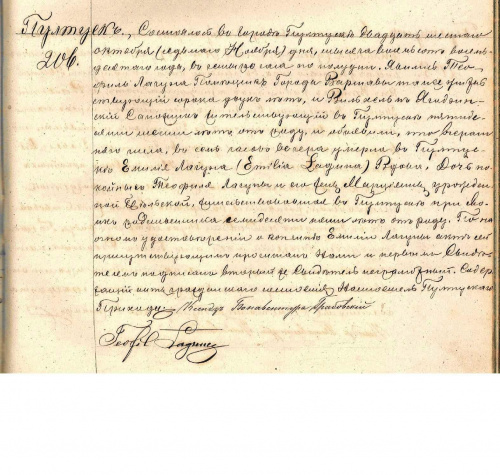 Пултускъ.
206.
Состоялось въ городѣ Пултускѣ двадцать шестаго
октября (седьмаго Ноября) дня, тысяча восемьсотъ восемь-
десятаго года, въ часа по полудни. Явились Тео-
филь Лагуна Города Варшавы тамже житель-
ствующій сорока двухъ лѣтъ, и
Сапожникъ жительствующій въ Пултускѣ пятиде-
сяти шести лѣтъ отъ роду, и объявили, что вчераш-
няго числа, въ семь часовъ вечера умерла въ Пулту-
скѣ Емилія Лагуна (Emilia Łaguna) Вдова, Дочь по-
койнаго Теофиля Лагуны и его жены урожден-
ной жительствовавшая въ Пултускѣ при
семидесяти лѣтъ отъ роду. По на-
стоящемъ удостовѣреніи о кончинѣ Емиліи Лагуны актъ сей
присутствующимъ прочитанъ Нами и первымъ Свидѣ-
телемъ подписанъ второй же Свидѣтель неграмотный. Содер-
жащій акты гражданскаго состоянія Настоятель Пултускаго
Прихода: Ксендзъ Бонавентура Грабовскій
Teofil Łaguna